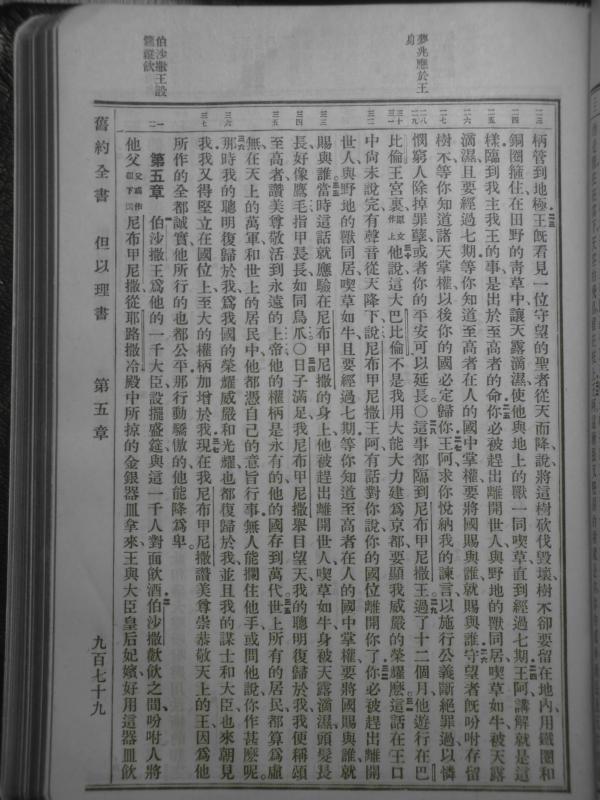 夢兆應於王身
伯沙撒王設筵縱飲
柄管到地極王既看見一位守望的聖者從天而降說將這樹砍伐毀壞樹不却要留在地內用鐵圈和
銅圈箍住在田野的靑草中讓天露滴濕使他與地上的獸一同喫草直到經過七期王阿講解就是這
樣臨到我主我王的事是出於至高者的命你必被趕出離開世人與野地的獸同居喫草如牛被天露
滴濕且要經過七期等你知道至高者在人的國中掌權要將國賜與誰就賜與誰守望者既吩咐存留
樹不等你知道諸天掌權以後你的國必定歸你王阿求你悅納我的諫言以施行公義斷絕罪過以憐
憫窮人除掉罪孽或者你的平安可以延長〇這事都臨到尼布甲尼撒王過了十二個月他遊行在巴
比倫王宮裏原文作上他說這大巴比倫不是我用大能大力建爲京都要顯我威嚴的榮耀麽這話在王口
中尙未說完有聲音從天降下說尼布甲尼撒王阿有話對你說你的國位離開你了你必被趕出離開
世人與野地的獸同居喫草如牛且要經過七期等你知道至高者在人的國中掌權要將國賜與誰就
賜與誰當時這話就應驗在尼布甲尼撒的身上他被趕出離開世人喫草如牛身被天露滴濕頭髮長
長好像鷹毛指甲長長如同鳥爪〇日子滿足我尼布甲尼撒舉目望天我的聰明復歸於我我便稱頌
至高者讚美尊敬活到永遠的上帝他的權柄是永有的他的國存到萬代世上所有的居民都算爲虛
無在天上的萬軍和世上的居民中他都憑自己的意旨行事無人能攔住他手或問他說你作甚麽呢
那時我的聰明復歸於我爲我國的榮耀威嚴和光耀也都復歸於我並且我的謀士和大臣也來朝見
我我又得堅立在國位上至大的權柄加增於我現在我尼布甲尼撒讚美尊崇恭敬天上的王因爲他
所作的全都誠實他所行的也都公平那行動驕傲的他能降爲卑
第五章 伯沙撒王爲他的一千大臣設擺盛筵與這一千人對面飲酒伯沙撒歡飲之間吩咐人將
他父父或作祖下同尼布甲尼撒從耶路撒冷殿中所掠的金銀器皿拿來王與大臣皇后妃嬪好用這器皿飲
舊約全書 但以理書 第五章 九百七十九